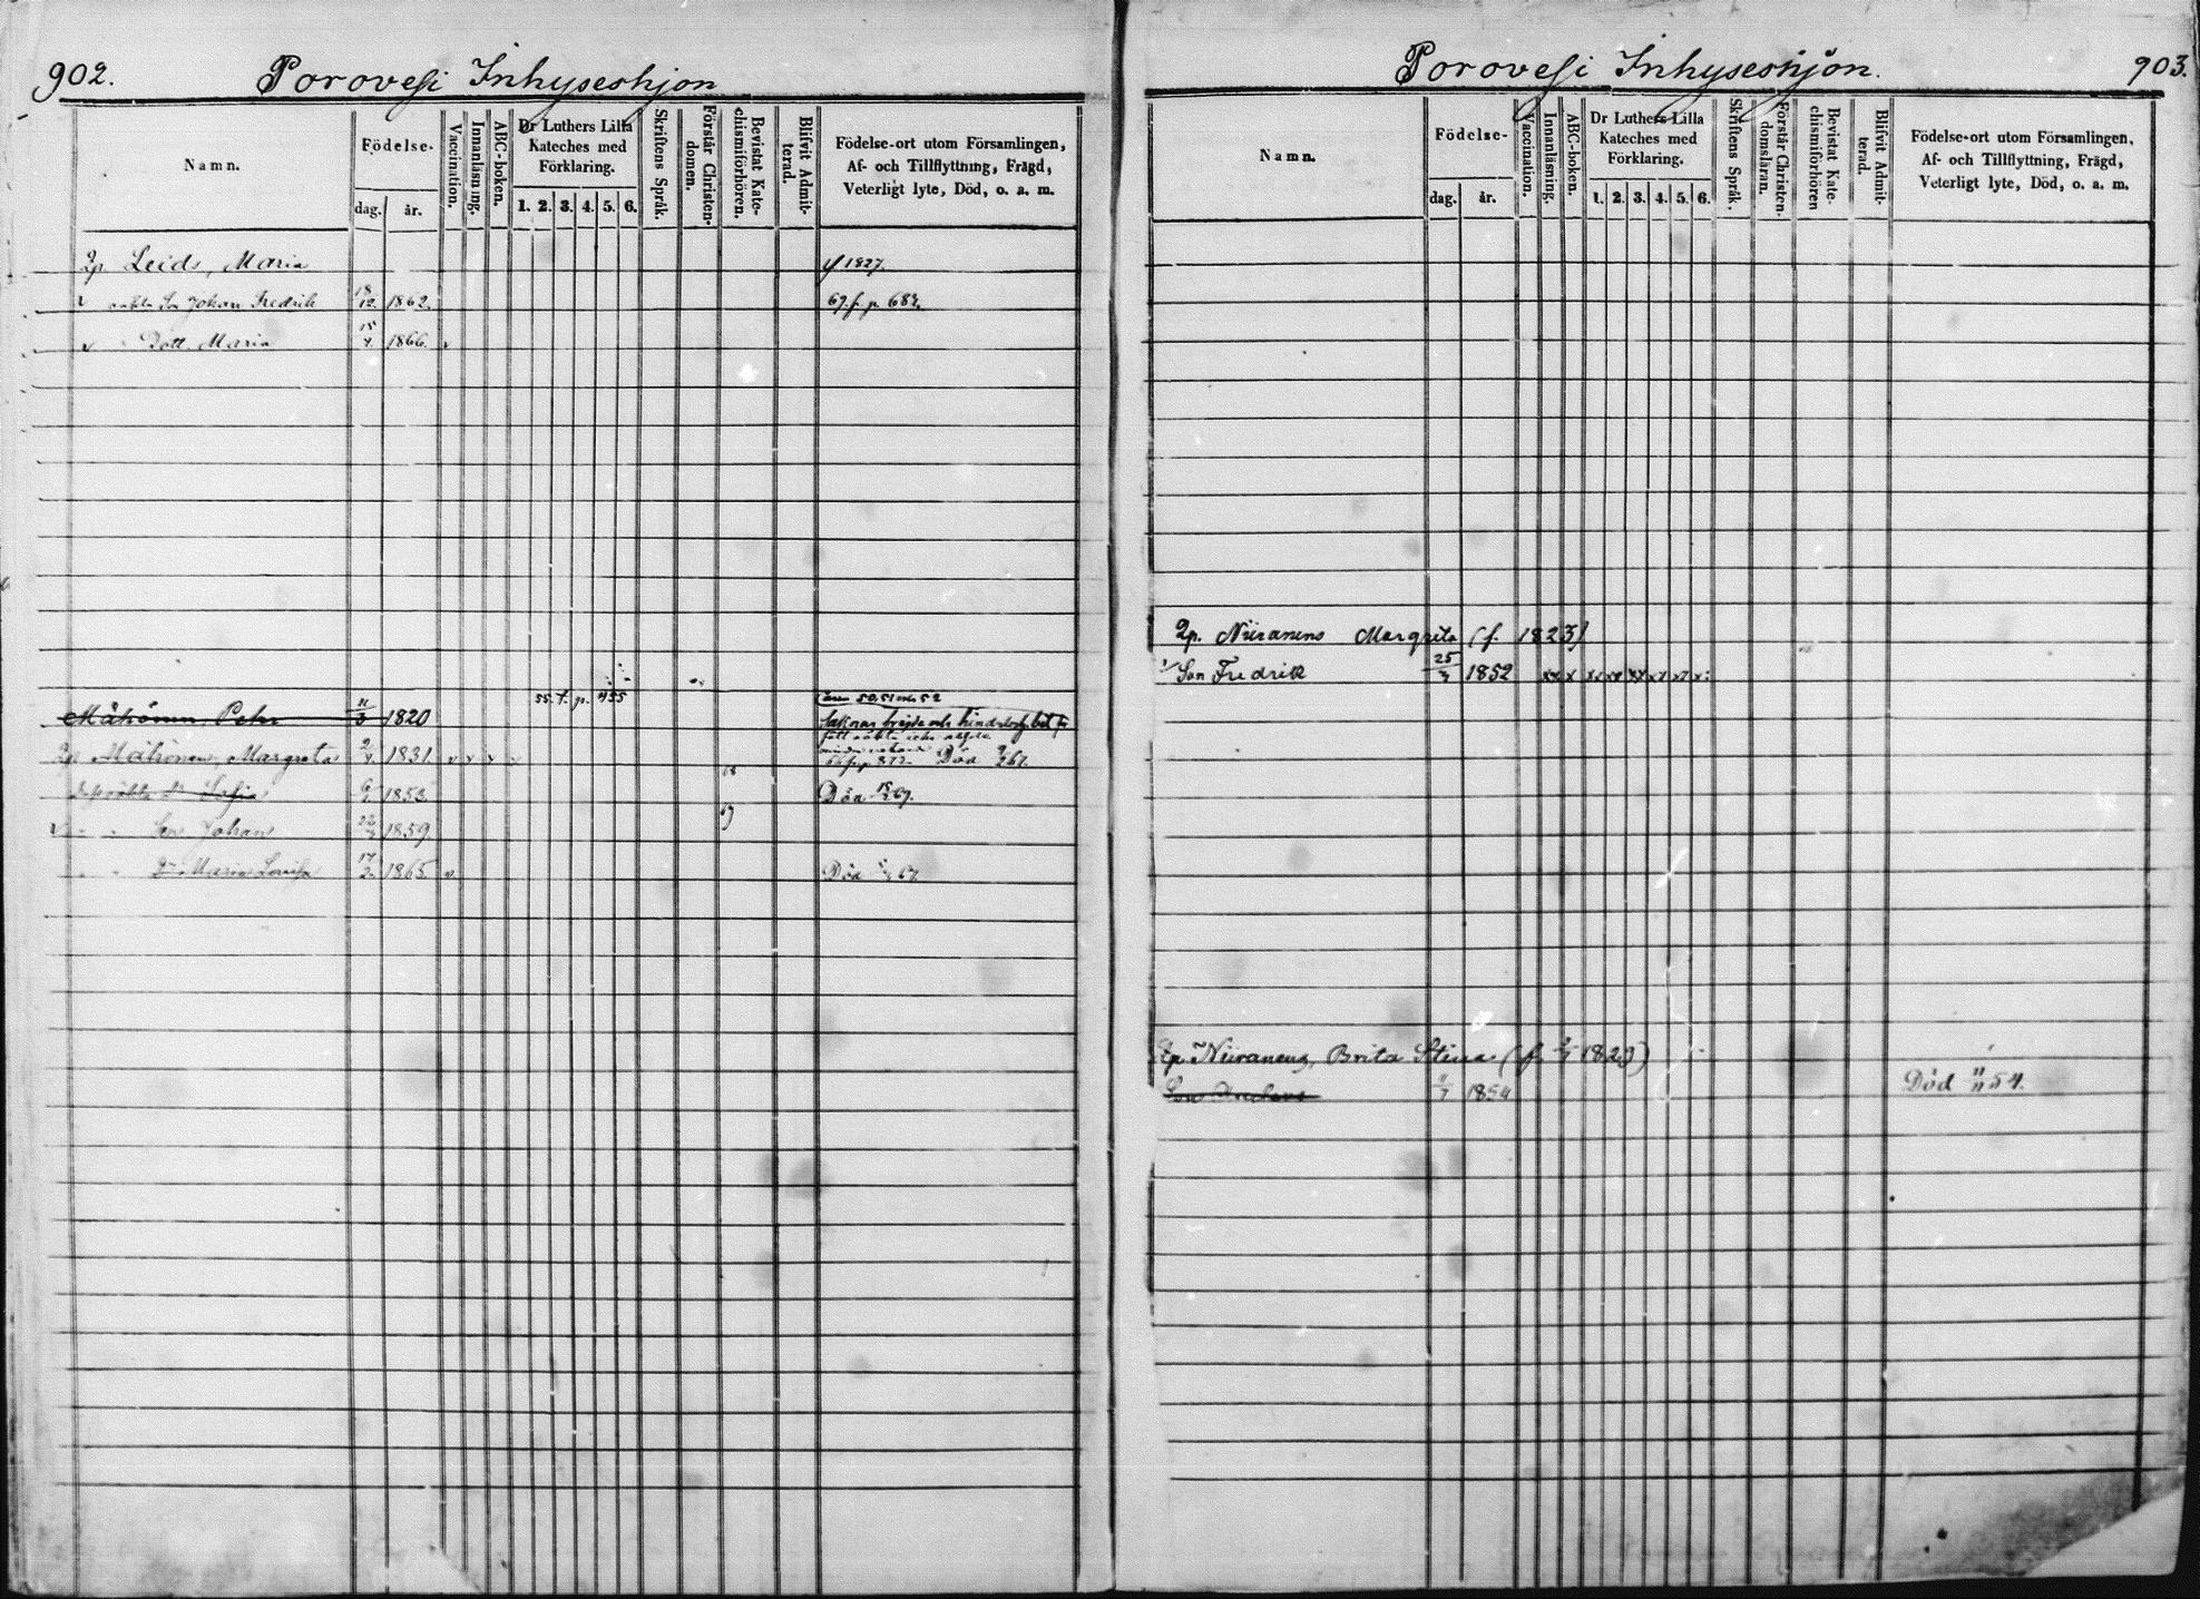 902. Porovesi Inhyseshjon
Namn.
Födelse-
dag. år.
Vaccination.
Innanläsning.
ABC-boken.
Dr Luthers Lilla
Kateches med
Förklaring.
1. 2. 3. 4. 5. 6.
Skriftens Språk.
Förstår Christen-
domen.
Bevistat Kate-
chismiförhören.
Blifvit Admit-
terad.
Födelse-ort utom Församlingen,
Af- och Tillflyttning, Frägd,
Veterligt lyte, Död, o. a. m.
Leids, Maria f 1827.
Johan Fredrik 18/12 1862. 67. f. p. 682.
Dott. Maria 1866.
55. f. p. 455
Måhönen Pehr 11/3 1820
Mähönen, Margreta 1831 Död 67.
Sofia 1853 Död 67.
Son Johan 1859
Dr Maria Lovisa 17/2 1865 Död 67
Porovesi Inhyseshjon. 903.
Namn.
Födelse-
dag. år.
Vaccination.
Innanläsning.
ABC-boken.
Dr Luthers Lilla
Kateches med
Förklaring.
1. 2. 3. 4. 5. 6.
Skriftens Språk.
Förstår Christen-
domsläran.
Bevistat Kate-
chismiförhören
Blifvit Admit-
terad.
Födelse-ort utom Församlingen,
Af- och Tillflyttning, Frägd,
Veterligt lyte, Död, o. a. m.
Niiranens Margreta (f. 1823)
Son Fredrik 1852
Niiranens, Brita Stina
Son Anders 1854 Död 54.